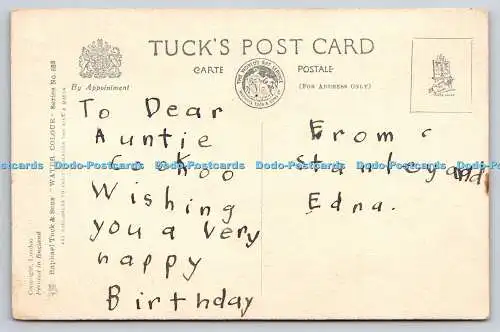 TUCK'S POST CARD
CARTE POSTALE
(FOR ADDRESS ONLY)
By Appointment
To Dear
Auntie
Cookoo
Wishing
you a very
happy
Birthday
From
Stanley and
Edna.
Raphael Tuck & Sons "WATER COLOUR"
Copyright, London
Printed in England
Dodo-Postcards Dodo-Postcards Dodo-Postcards Dodo-Postcards Dodo-Postcards